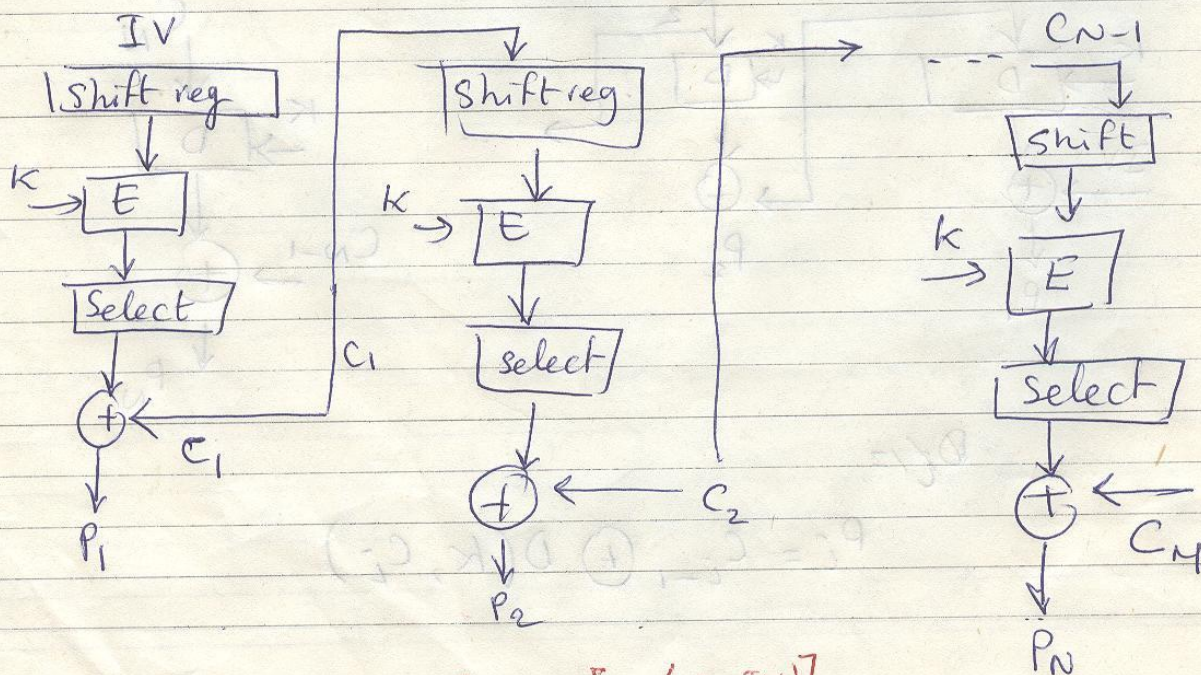 IV
Shift reg
K
E
Select
C1
C1
P1
Shift reg
K
E
Select
C2
P2
- - - CN-1
Shift
K
E
Select
CN
PN